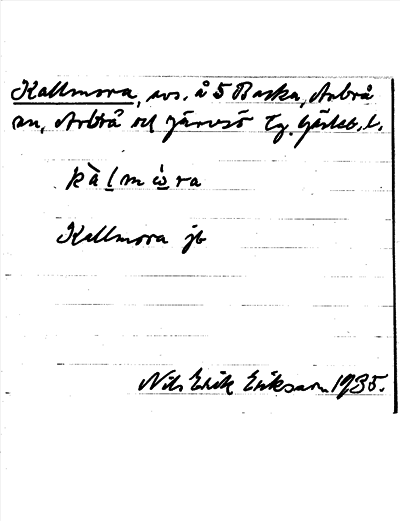 Kallmora, avs. å 5 Backa, Arbrå
sn, Arbrå och Järvsö tg. Gävleb. l.
kàl̲mὼ̲ra
Kallmora jb
Nils Erik Eriksson 1935.